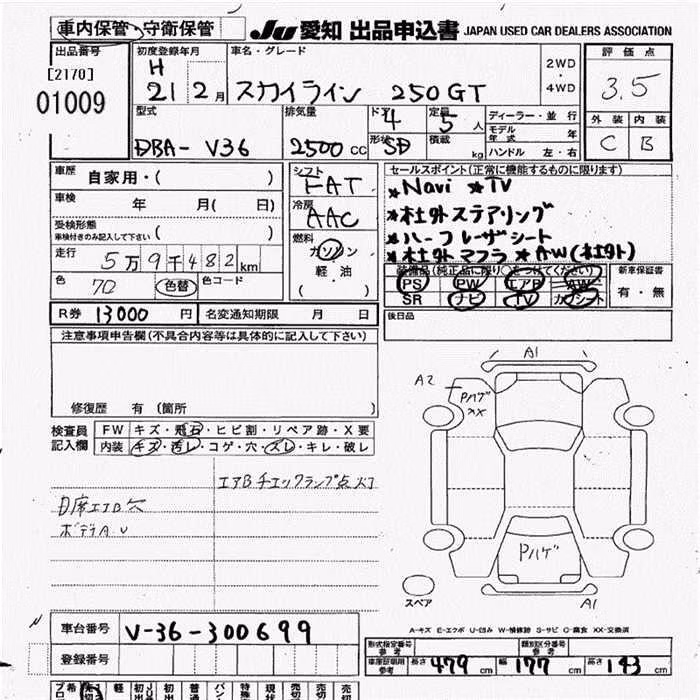 車内保管・守衛保管 JU 愛知 出品申込書 JAPAN USED CAR DEALERS ASSOCIATION
出品番号 初度登録年月 車名・グレード 2WD・4WD 評価点
[2170] H
01009 21 2月 スカイライン 250GT 3.5
型式 排気量 ドア 4 定員 5人 ディーラー・並行 外装 内装
DBA-V36 2500cc 形状 SD 積載 kg モデル年式 年 C B
ハンドル 左・右
車歴 自家用・( ) シフト FAT セールスポイント(正常に機能するものに限ります)
車検 年 月( 日) 冷房 AAC ★Navi ★TV
受検形態 ( ) ★社外ステアリング
車検付きのみ記入して下さい 燃料 ガソリン ★ハーフレザシート
走行 5万9千482km 軽・油 ★社外マフラ ★AW(社外)
色 色替 色コード ( ) 装備品(純正品に限り○をつけてください) 新車保証書
PS PW エアB AW 有・無
SR ナビ TV カワシート
R券 13000円 名変通知期限 月 日 後日品
注意事項申告欄(不具合内容等は具体的に記入して下さい)
修復歴 有 (箇所 )
検査員記入欄 FW キズ・飛石・ヒビ割・リペア跡・X要
内装 キズ・汚レ・コゲ・穴・スレ・キレ・破レ
エアBチェックランプ点灯
エアB欠
ボデーA.U
A1
A2
Pハゲ
XX
Pハゲ
スペア A1
A-キズ E-エクボ U-凹み W-補修跡 S-サビ C-腐食 XX-交換済
車台番号 V-36-300699
登録番号
形式指定番号 参考 類別区分番号 参考
車庫証明用 参考 長さ 479cm 幅 177cm 高さ 143cm